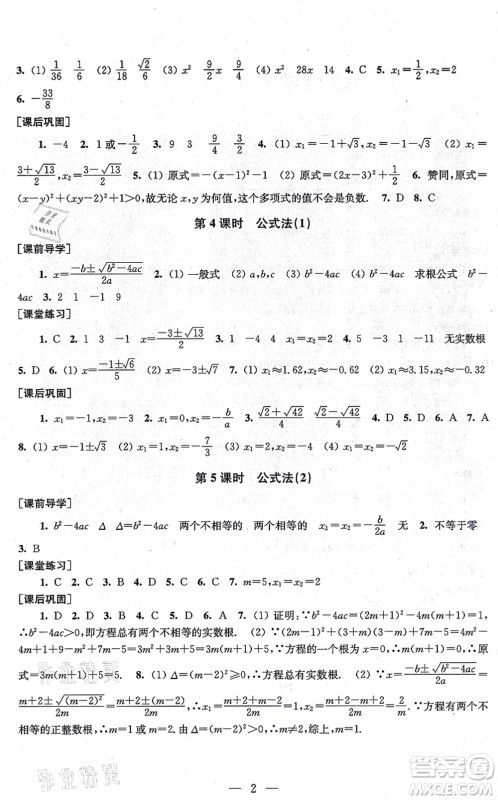 3. (1) 1/36 1/6 (2) 1/18 √2/6 (3) x² 9/2 9/4 (4) x² 28x 14 4. C 5. x₁=1/2, x₂=2
6. -33/8
[课后巩固]
1. -4 2. 1或-1/2 3. 9 3 9/4 3/2 4. (1) x₁=-1+√3, x₂=-1-√3 (2) x₁=
(3+√3)/2, x₂=(3-√3)/2 5. (1) 原式=-(x-1)²-1/2 (2) 原式=(x-1/2)²+11/4 6. 赞同. 原式=
(x-y)²+(xy-2)²+1>0,故无论 x,y 为何值,这个多项式的值不会是负数. 7. D 8. C
第 4 课时 公式法(1)
[课前导学]
1. x=(-b±√(b²-4ac))/2a 2. (1) 一般式 (2) a,b,c (3) b²-4ac 求根公式 3. x²+2x-
9=0 1 2 -1 9
[课堂练习]
1. C 2. 1 3 -1 (-3±√13)/2 3. 1 -4 4 x₁=x₂=2 4. 5 -3 1 -11 无实数根
5. D 6. (1) x=(-1±√6)/5 (2) x=-3±√7 7. (1) x₁≈1.62, x₂≈-0.62 (2) x₁≈3.15, x₂≈-0.32
[课后巩固]
1. x₁=-1, x₂=-3 2. x₁=0, x₂=-b/a 3. (√2+√42)/4 (√2-√42)/4 4. D 5. C 6. A 7. A
8. (1) x=-1±√3 (2) x₁=1, x₂=-7/3 (3) x₁=4, x₂=-1 (4) x₁=x₂=-√2
第 5 课时 公式法(2)
[课前导学]
1. b²-4ac Δ Δ=b²-4ac 两个不相等的 两个相等的 x₁=x₂=-b/2a 无 2. 不等于零
3. B
[课堂练习]
1. C 2. C 3. B 4. C 5. D 6. C 7. m=5, x₁=x₂=2
[课后巩固]
1. D 2. D 3. B 4. D 5. C 6. A 7. (1) 证明:∵b²-4ac=(2m+1)²-4m(m+1)=1,
∴b²-4ac>0,即方程总有两个不相等的实数根. (2) 将 x=0 代入方程得 m(m+1)=0. ∵7m-5-
4m²+1=3m²+3m+5,m(m+1)=0,∴原
式=3m(m+1)+5=5. 8. (1) ∵Δ=(m+2)²-8m=m²-4m+4=(m-2)²,∴方程总有两个实数根. (2) ∵x=(-b±√(b²-4ac))/2a=
(m+2±√(m-2)²)/2m=(m+2±(m-2))/2m,∴x₁=(m+2+m-2)/2m=1, x₂=(m+2-m+2)/2m=2/m. ∵方程有两个不
相等的正整数根,∴m=1 或 m=2. 由 Δ=(m-2)²>0,∴m≠2,综上,m=1.
— 2 —
作业精灵
作业精灵
答案圈
MXQE.COM